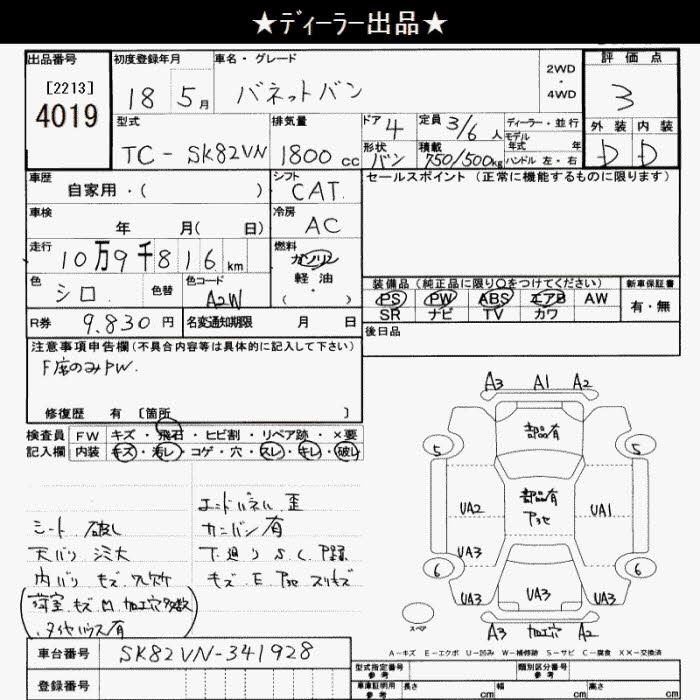 ★ディーラー出品★
出品番号
[2213]
4019
初度登録年月
18 5月
車名・グレード
バネットバン
2WD
・
4WD
評価点
3
外装 内装
D D
型式
TC-SK82VN
排気量
1800cc
ドア 4
形状
バン
定員 3/6人
積載
750/500kg
ディーラー・並行
モデル
年式 年
ハンドル 左・右
車歴
自家用・( )
シフト
CAT.
セールスポイント (正常に機能するものに限ります)
車検
年 月( 日)
冷房
AC
走行
10万9千816km
燃料
ガソリン
軽油
( ・ )
色
シロ
色替
色コード
A2W
装備品(純正品に限り○をつけてください)
PS PW ABS エアB AW
SR ナビ TV カワ
新車保証書
有・無
R券 9,830円
名変通知期限 月 日
後日品
注意事項申告欄(不具合内容等は具体的に記入して下さい)
F席のみPW.
修復歴 有 [箇所 ]
検査員
記入欄
FW キズ・飛石・ヒビ割・リペア跡・×要
内装 キズ・汚レ・コゲ・穴・スレ・キレ・破レ
シート 破レ
天バリ シミ大
内バリ キズ 穴 欠ケ
(荷室 キズ 凹 加工穴多数
・タイヤハウス有)
エンドパネル 歪
カンバン有
下廻り S.C.
キズ E
A3 A1 A2
5 5
部品有
部品有
UA2 UA1
UA3
6 6
UA3 UA3 UA3
スペア
A3 加工穴 A2
A-キズ E-エクボ U-凹み W-補修跡 S-サビ C-腐食 XX-交換済
車台番号 SK82VN-341928
登録番号
型式指定番号
参考
類別区分番号
参考
車庫証明用
参考
長さ cm 幅 cm 高さ cm